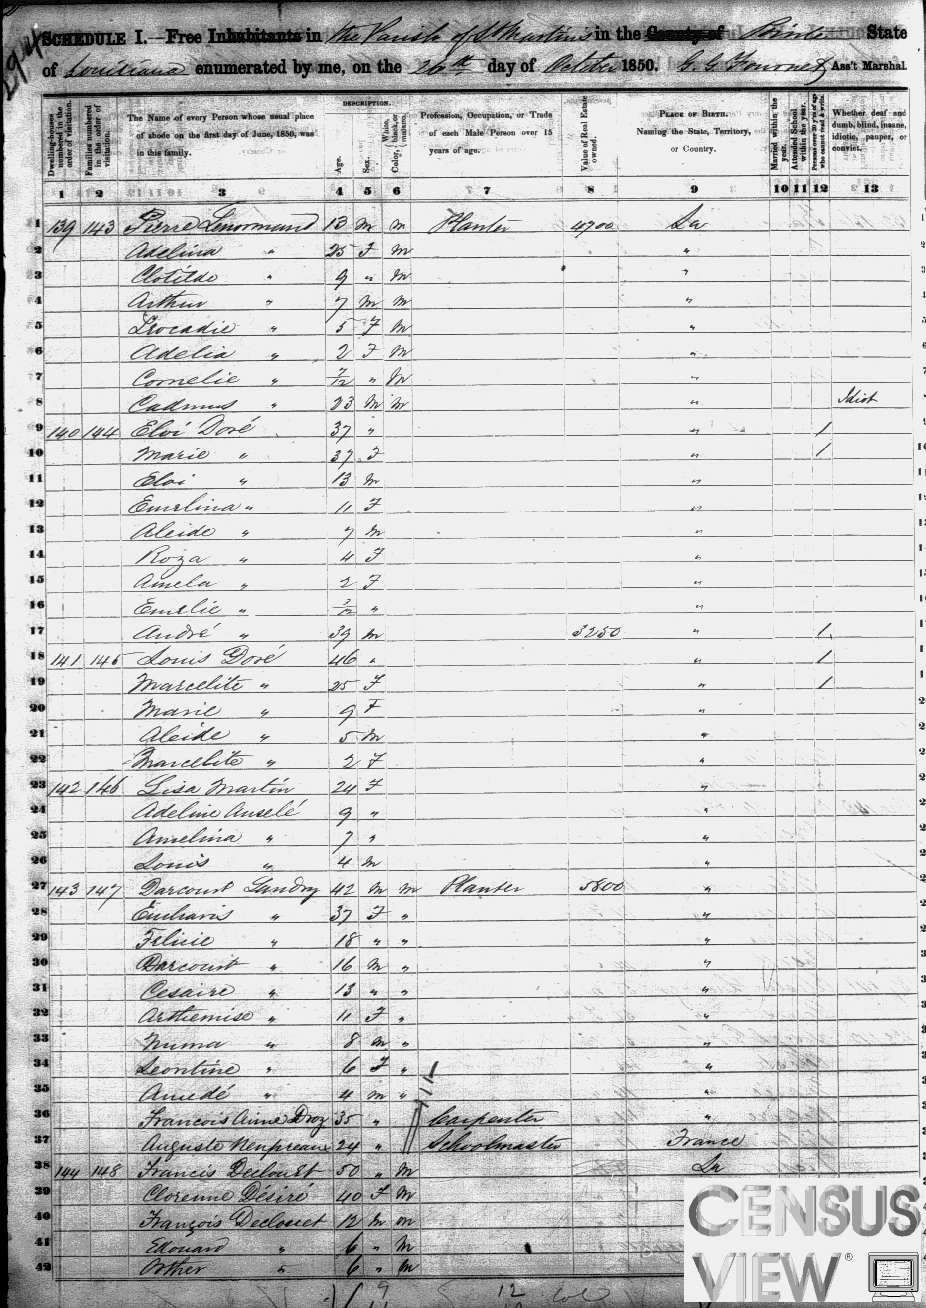 SCHEDULE I.—Free Inhabitants in the Parish of St Martins in the County of State
of Louisiana enumerated by me, on the 26th day of October 1850. Ass't Marshal.
DESCRIPTION.
Dwelling-houses numbered in the order of visitation.
Families numbered in the order of visitation.
The Name of every Person whose usual place of abode on the first day of June, 1850, was in this family.
Age.
Sex.
Color, White, black, or mulatto.
Profession, Occupation, or Trade of each Male Person over 15 years of age.
Value of Real Estate owned.
PLACE OF BIRTH. Naming the State, Territory, or Country.
Married within the year.
Attended School within the year.
Persons over 20 y'rs of age who cannot read & write.
Whether deaf and dumb, blind, insane, idiotic, pauper, or convict.
1 2 3 4 5 6 7 8 9 10 11 12 13
1 139 143 Pierre Lenormand m m Planter 4700 La
2 Adelina " 25 F m "
3 Clotilde " 9 " m "
4 Arthur " 7 m m "
5 Leocadie " 5 F m "
6 Adelia " 2 F m "
7 Cornelie " 7/12 " m "
8 Cadmus " 23 m m " Idiot
9 140 144 Eloi Doré 37 " " 1
10 Marie " 37 F " 1
11 Eloi " 13 m "
12 Emelina " 11 F "
13 Alcide " 7 m "
14 Roza " 4 F "
15 Amela " 2 F "
16 Emelie " 3/12 " "
17 André " 39 m 3250 " 1
18 141 145 Louis Doré 46 " " 1
19 Marcelite " 25 F " 1
20 Marie " 9 F "
21 Alcide " 5 m "
22 Marcelite " 2 F "
23 142 146 Lisa Martin 24 F "
24 Adeline Auselé 9 " "
25 Amelina " 7 " "
26 Louis " 4 m "
27 143 147 Darcourt Landry 42 m m Planter 5800 "
28 Eucharis " 37 F " "
29 Felicie " 18 " " "
30 Darcourt " 16 m " "
31 Cesaire " 13 " " "
32 Arthemise " 11 F " "
33 Numa " 8 m " "
34 Leontine " 6 F " "
35 Amedé " 4 m " "
36 Francois Aime Droz 35 " Carpenter "
37 Auguste 24 " Schoolmaster France
38 144 148 Francis Declouet 50 " m La
39 Clorenne Desiré 40 F m
40 François Declouet 12 m m
41 Edouard " 6 " m
42 Arther " 6 " m
CENSUS
VIEW®